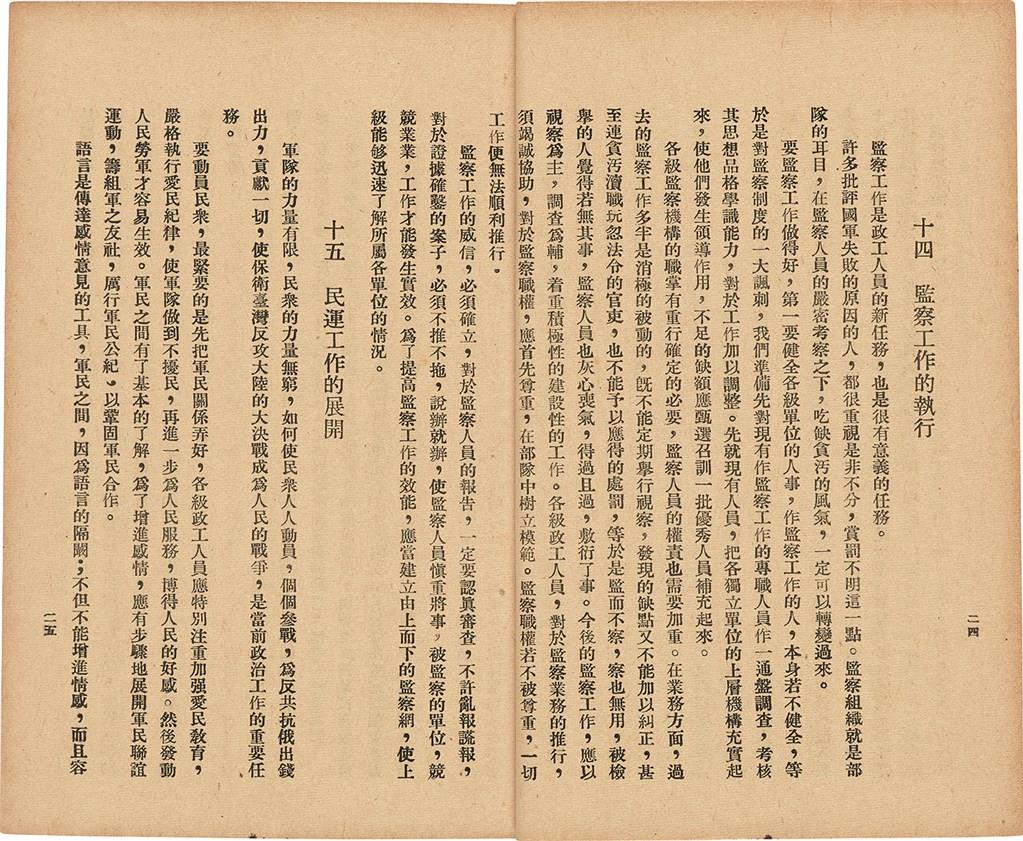 十四　監察工作的執行
監察工作是政工人員的新任務，也是很有意義的任務。
許多批評國軍失敗的原因的人，都很重視是非不分，賞罰不明這一點。監察組織就是部
隊的耳目，在監察人員的嚴密考察之下，吃缺貪汚的風氣，一定可以轉變過來。
要監察工作做得好，第一要健全各級單位的人事，作監察工作的人，本身若不健全，等
於是對監察制度的一大諷刺，我們準備先對現有作監察工作的專職人員作一通盤調查，考核
其思想品格學識能力，對於工作加以調整。先就現有人員，把各獨立單位的上層機構充實起
來，使他們發生領導作用，不足的缺額應甄選召訓一批優秀人員補充起來。
各級監察機構的職掌有重行確定的必要，監察人員的權責也需要加重。在業務方面，過
去的監察工作多半是消極的被動的，旣不能定期舉行視察，發現的缺點又不能加以糾正，甚
至連貪汚瀆職玩忽法令的官吏，也不能予以應得的處罰，等於是監而不察，察也無用，被檢
舉的人覺得若無其事，監察人員也灰心喪氣，得過且過，敷衍了事。今後的監察工作，應以
視察爲主，調查爲輔，着重積極性的建設性的工作。各級政工人員，對於監察業務的推行，
須竭誠協助，對於監察職權，應首先尊重，在部隊中樹立模範。監察職權若不被尊重，一切
二四
工作便無法順利推行。
監察工作的威信，必須確立，對於監察人員的報告，一定要認眞審查，不許亂報謊報，
對於證據確鑿的案子，必須不推不拖，說辦就辦，使監察人員愼重將事，被監察的單位，兢
兢業業，工作才能發生實效。爲了提高監察工作的效能，應當建立由上而下的監察網，使上
級能够迅速了解所屬各單位的情況。
十五　民運工作的展開
軍隊的力量有限，民衆的力量無窮，如何使民衆人人動員，個個參戰，爲反共抗俄出錢
出力，貢獻一切，使保衛臺灣反攻大陸的大決戰成爲人民的戰爭，是當前政治工作的重要任
務。
要動員民衆，最緊要的是先把軍民關係弄好，各級政工人員應特別注重加强愛民敎育，
嚴格執行愛民紀律，使軍隊做到不擾民，再進一步爲人民服務，博得人民的好感。然後發動
人民勞軍才容易生效。軍民之間有了基本的了解，爲了增進感情，應有步驟地展開軍民聯誼
運動，籌組軍之友社，厲行軍民公紀，以鞏固軍民合作。
語言是傳達感情意見的工具，軍民之間，因爲語言的隔閡；不但不能增進情感，而且容
二五